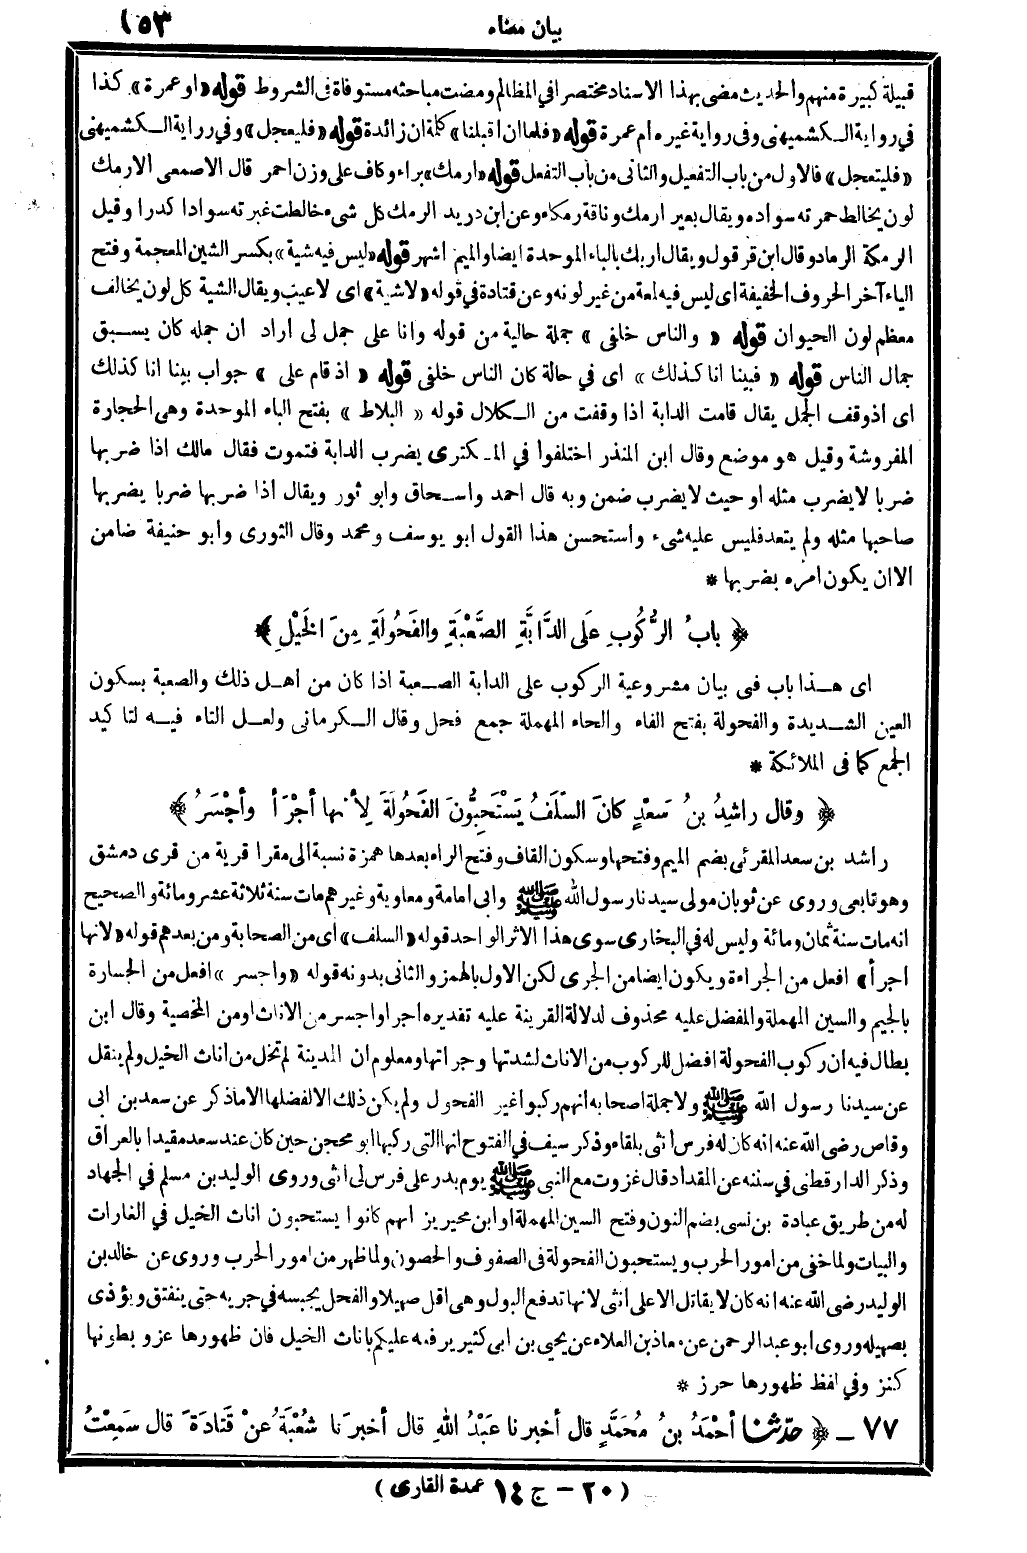 بيان معناه
١٥٣
قبيلة كبيرة منهم والحديث مضى بهذا الاسناد مختصرا في المظالم ومضت مباحثه مستوفاة في الشروط قوله «او عمرة» كذا
في رواية الكشميهنى وفى رواية غيره ام عمرة قوله «فلما ان اقبلنا» كلمة ان زائدة قوله «فليعجل» وفي رواية الكشميهنى
«فليتعجل» فالاول من باب التفعيل والثانى من باب التفعل قوله «ارمك» براء وكاف على وزن احمر قال الاصمعى الارمك
لون يخالط حمرته سواده ويقال بعير ارمك وناقة رمكاء وعن ابن دريد الرمك كل شىء خالطت غبرته سوادا كدرا وقيل
الرمكة الرماد وقال ابن قرقول ويقال اربك بالباء الموحدة ايضا والميم اشهر قوله «ليس فيه شية» بكسر الشين المعجمة وفتح
الياء آخر الحروف الخفيفة اى ليس فيه لمعة من غير لونه وعن قتادة في قوله «لاشية» اى لاعيب ويقال الشية كل لون يخالف
معظم لون الحيوان قوله « والناس خلفى » جملة حالية من قوله وانا على جمل لى أراد ان جمله كان يسبق
جمال الناس قوله « فبينا انا كذلك » اى في حالة كان الناس خلفى قوله « اذ قام على » جواب بينا انا كذلك
اى اذ وقف الجمل يقال قامت الدابة اذا وقفت من الكلال قوله « البلاط » بفتح الباء الموحدة وهى الحجارة
المفروشة وقيل هو موضع وقال ابن المنذر اختلفوا في المكترى يضرب الدابة فتموت فقال مالك اذا ضربها
ضربا لا يضرب مثله او حيث لا يضرب ضمن وبه قال احمد واسحاق وابو ثور ويقال اذا ضربها ضربا يضربها
صاحبها مثله ولم يتعد فليس عليه شىء واستحسن هذا القول ابو يوسف ومحمد وقال الثورى وابو حنيفة ضامن
الا ان يكون امره بضربها *
﴿ بابُ الرُّكُوبِ عَلَى الدَّابَّةِ الصَّعْبَةِ والفَحُولَةِ مِنَ الخَيْلِ ﴾
اى هذا باب فى بيان مشروعية الركوب على الدابة الصعبة اذا كان من اهل ذلك والصعبة بسكون
العين الشديدة والفحولة بفتح الفاء والحاء المهملة جمع فحل وقال الكرمانى ولعل التاء فيه لتاكيد
الجمع كما فى الملائكة *
﴿ وقال راشِدُ بنُ سَعْدٍ كانَ السَّلَفُ يَسْتَحِبُّونَ الفَحُولَةَ لِأَنَّها أجْرَأُ وأجْسَرُ ﴾
راشد بن سعد المقرئى بضم الميم وفتحها وسكون القاف وفتح الراء بعدها همزة نسبة الى مقرا قرية من قرى دمشق
وهو تابعى وروى عن ثوبان مولى سيدنا رسول الله ﷺ وابى امامة ومعاوية وغيرهم مات سنة ثلاثة عشر ومائة والصحيح
انه مات سنة ثمان ومائة وليس له في البخارى سوى هذا الاثر الواحد قوله «السلف» اى من الصحابة ومن بعدهم قوله «لانها
اجرأ» افعل من الجراءة ويكون ايضا من الجرى لكن الاول بالهمز والثانى بدونه قوله «واجسر» افعل من الجسارة
بالجيم والسين المهملة والمفضل عليه محذوف لدلالة القرينة عليه تقديره اجرا واجسر من الاناث او من المخصية وقال ابن
بطال فيه ان ركوب الفحولة افضل للركوب من الاناث لشدتها وجراتها ومعلوم ان المدينة لم تخل من اناث الخيل ولم ينقل
عن سيدنا رسول الله ﷺ ولا جملة اصحابه انهم ركبوا غير الفحول ولم يكن ذلك الا لفضلها الا ماذكر عن سعد بن ابى
وقاص رضى الله عنه انه كان له فرس أنثى بلقاء وذكر سيف في الفتوح انها التى ركبها ابو محجن حين كان عند سعد مقيدا بالعراق
وذكر الدار قطنى في سننه عن المقداد قال غزوت مع النبى ﷺ يوم بدر على فرس لى انثى وروى الوليد بن مسلم في الجهاد
له من طريق عبادة بن نسى بضم النون وفتح السين المهملة او ابن محيريز انهم كانوا يستحبون اناث الخيل في الغارات
والبيات ولما خفى من امور الحرب ويستحبون الفحولة في الصفوف والحصون ولما ظهر من امور الحرب وروى عن خالد بن
الوليد رضى الله عنه انه كان لا يقاتل الا على انثى لانها تدفع البول وهى اقل صهيلا والفحل يحبسه في جريه حتى ينفتق ويؤذى
بصهيله وروى ابو عبد الرحمن عن معاذ بن العلاء عن يحيى بن ابى كثير يرفعه عليكم باناث الخيل فان ظهورها عز وبطونها
كنز وفي لفظ ظهورها حرز *
٧٧ ـ ﴿ حدّثنا أحْمَدُ بنُ مُحَمَّدٍ قال أخبرنا عَبْدُ اللهِ قال أخبرَنا شُعْبَةُ عنْ قَتَادَةَ قال سَمِعْتُ
(٢٠ – ج ١٤ عمدة القارى)